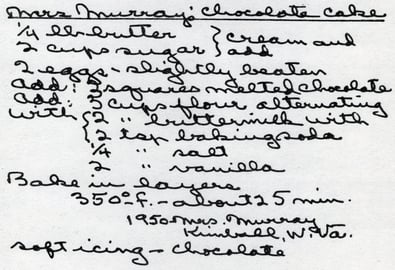 Mrs Murray's Chocolate Cake
1/4 lb. butter } cream and
2 cups sugar } add
2 eggs - slightly beaten
add: 2 squares melted chocolate
add: 2 cups flour alternating
with { 2 " buttermilk with
2 tsp baking soda
1/4 " salt
2 " vanilla
Bake in layers
350° f. - about 25 min.
1950 Mrs. Murray
Kimball, W. Va.
soft icing - chocolate